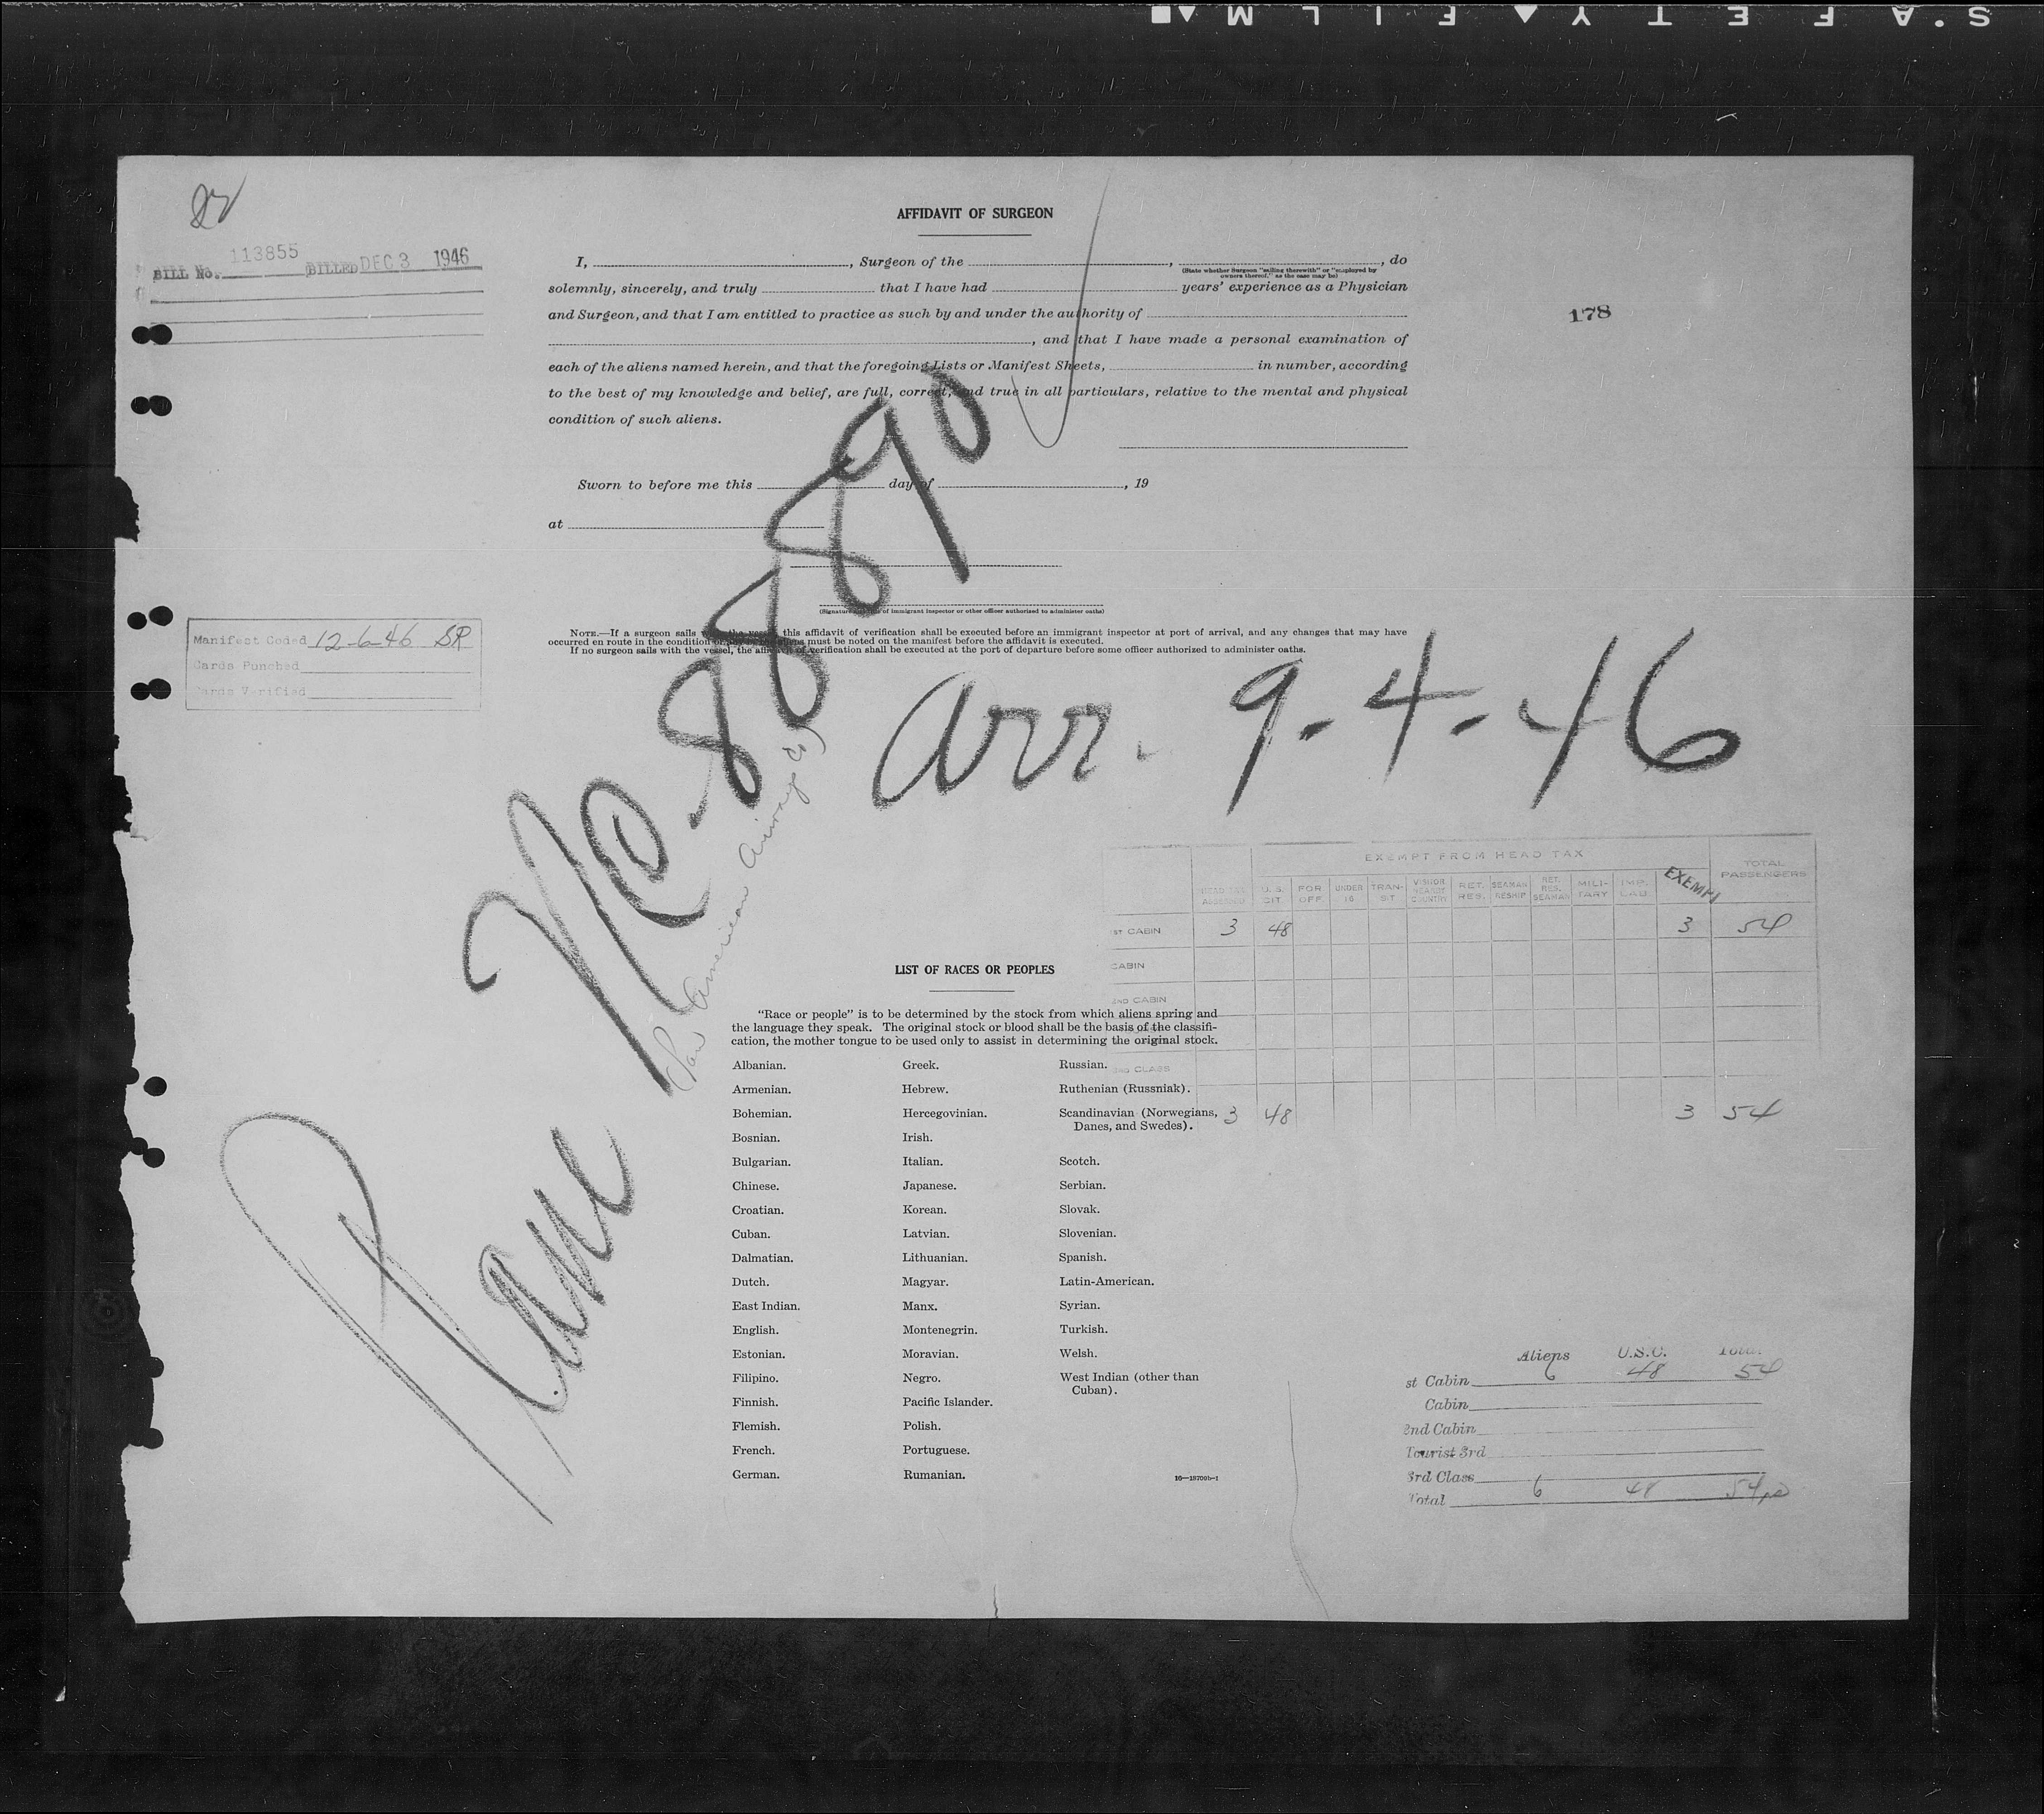 S.A F E T Y ▲ F I L M ▲■
27
AFFIDAVIT OF SURGEON
BILL No. 113855 BILLED DEC 3 1946
I, , Surgeon of the , , do
(State whether Surgeon "sailing therewith" or "employed by
owners thereof," as the case may be)
solemnly, sincerely, and truly that I have had years' experience as a Physician
and Surgeon, and that I am entitled to practice as such by and under the authority of
178
, and that I have made a personal examination of
each of the aliens named herein, and that the foregoing Lists or Manifest Sheets, in number, according
to the best of my knowledge and belief, are full, correct, and true in all particulars, relative to the mental and physical
condition of such aliens.
Sworn to before me this day of , 19
at
(Signature of immigrant inspector or other officer authorized to administer oaths)
NOTE.—If a surgeon sails with the vessel, this affidavit of verification shall be executed before an immigrant inspector at port of arrival, and any changes that may have
occurred en route in the condition of any of the aliens must be noted on the manifest before the affidavit is executed.
If no surgeon sails with the vessel, the affidavit of verification shall be executed at the port of departure before some officer authorized to administer oaths.
Manifest Coded 12-6-46 SR
Cards Punched
Cards Verified
Plane NC-88890
(Pan American Airways Co)
arr. 9-4-46
EXEMPT FROM HEAD TAX
HEAD TAX ASSESSED U.S. CIT. FOR OFF UNDER 16 TRAN-SIT VISITOR NEARBY COUNTRY RET. RES. SEAMAN RESHIP RET. RES. SEAMAN MILI-TARY IMP. LAB. EXEMPT TOTAL PASSENGERS
1ST CABIN 3 48 3 54
CABIN
2ND CABIN
3RD CLASS
3 48 3 54
LIST OF RACES OR PEOPLES
"Race or people" is to be determined by the stock from which aliens spring and
the language they speak. The original stock or blood shall be the basis of the classifi-
cation, the mother tongue to be used only to assist in determining the original stock.
Albanian. Greek. Russian.
Armenian. Hebrew. Ruthenian (Russniak).
Bohemian. Hercegovinian. Scandinavian (Norwegians,
Danes, and Swedes).
Bosnian. Irish.
Bulgarian. Italian. Scotch.
Chinese. Japanese. Serbian.
Croatian. Korean. Slovak.
Cuban. Latvian. Slovenian.
Dalmatian. Lithuanian. Spanish.
Dutch. Magyar. Latin-American.
East Indian. Manx. Syrian.
English. Montenegrin. Turkish.
Estonian. Moravian. Welsh.
Filipino. Negro. West Indian (other than
Cuban).
Finnish. Pacific Islander.
Flemish. Polish.
French. Portuguese.
German. Rumanian.
16—18709b-1
Aliens U.S.C. Total
st Cabin 6 48 54
Cabin
2nd Cabin
Tourist 3rd
3rd Class
Total 6 48 54